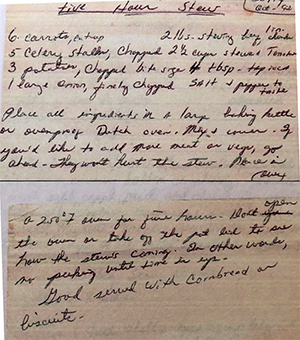 Five Hour Stew
Oct - 92
6 carrots, cut up 2 lbs. stewing beef 1" chunks
5 Celery stalks, Chopped 2½ cups stewed Tomatoes
3 potatoes, Chopped bite size 4 tbsp. tapioca
1 large onion, finely chopped Salt & pepper to taste
Place all ingredients in a large baking kettle
or ovenproof Dutch oven. Mix & cover. If
you'd like to add more meat or vegs, go
ahead - They won't hurt the stew. Place in
(over)
a 250° F oven for five hours - Don't open
the oven or take off the pot lid to see
how the stew's coming. In other words,
no peeking until time is up -
Good served with Cornbread or
biscuits -